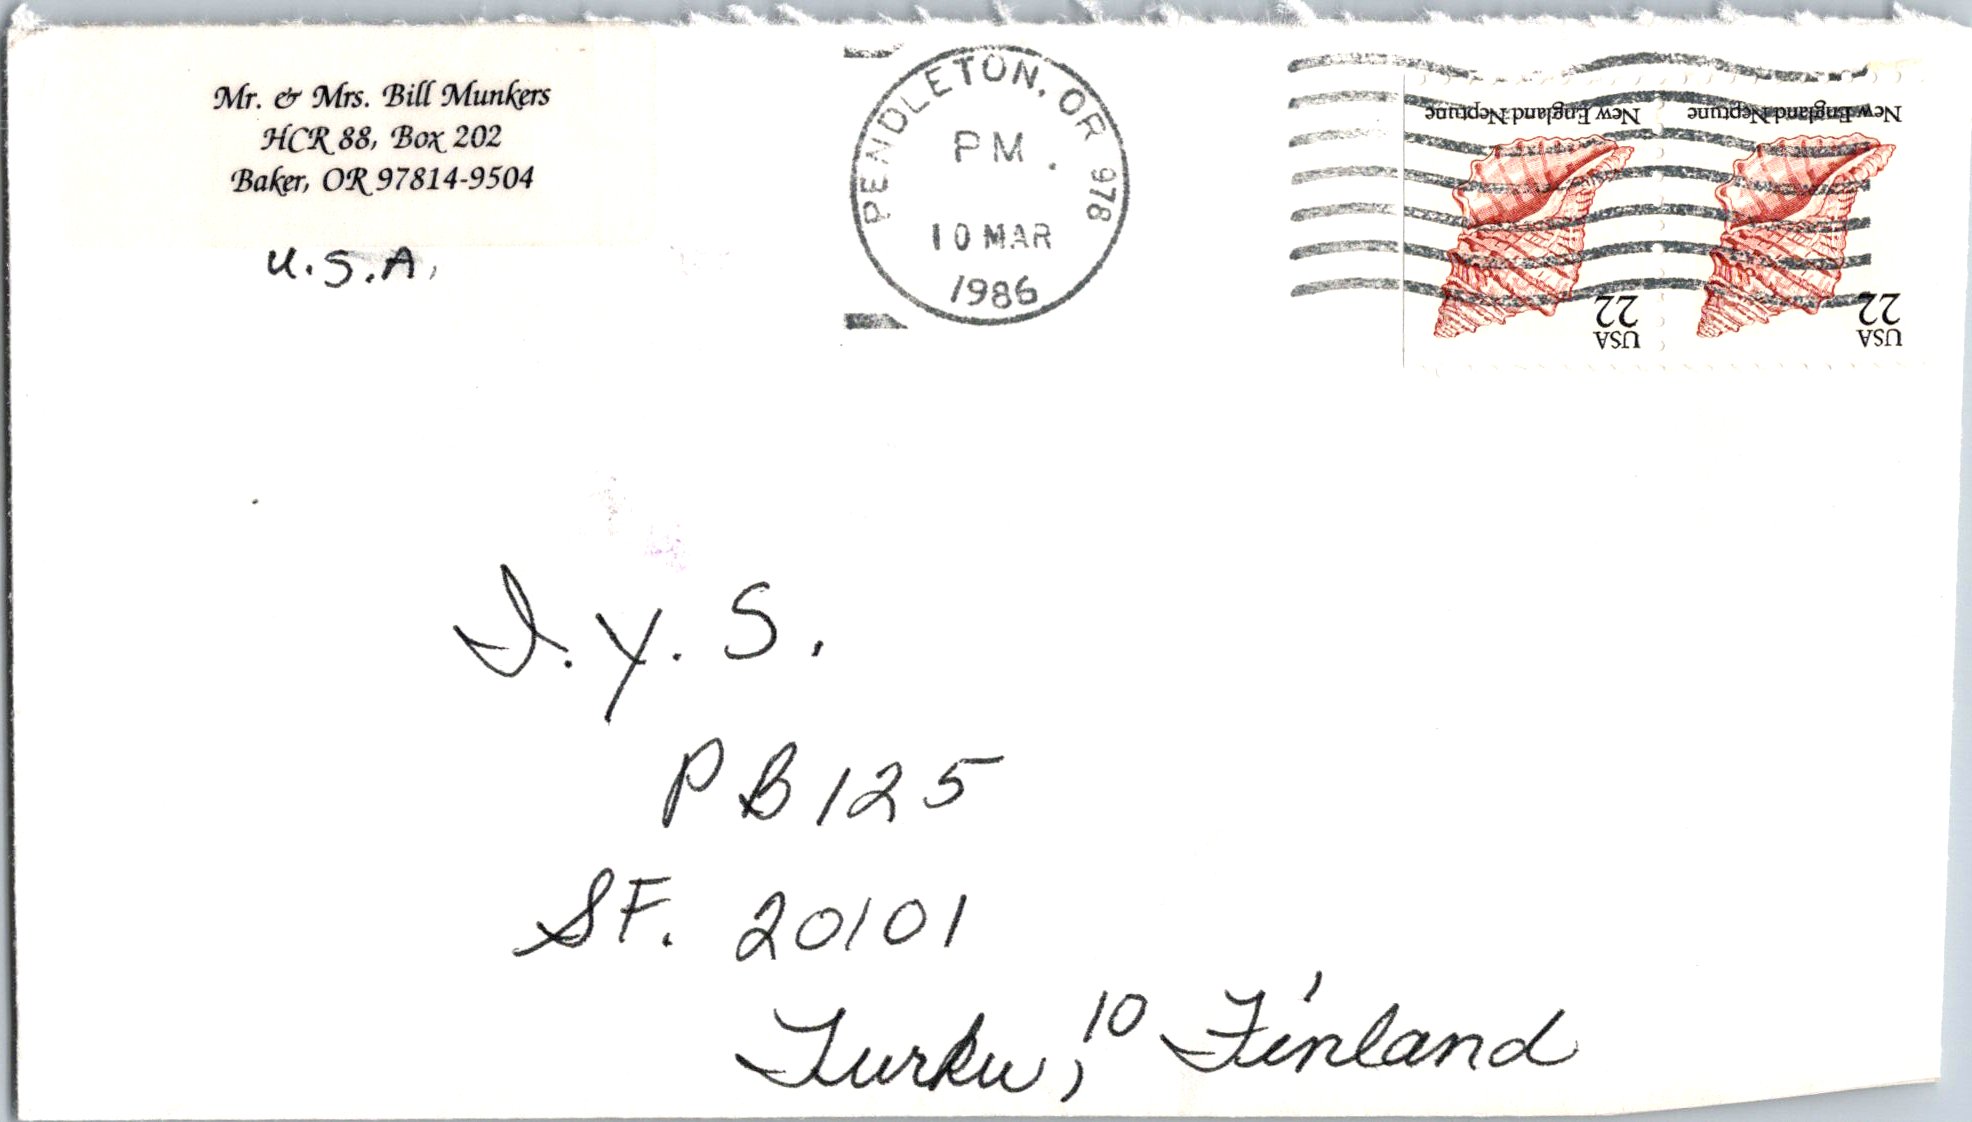 Mr. & Mrs. Bill Munkers
HCR 88, Box 202
Baker, OR 97814-9504
U.S.A.
PENDLETON, OR 978
PM
10 MAR
1986
New England Neptune
22
USA
New England Neptune
22
USA
I.Y.S.
PB 125
SF. 20101
Turku, 10 Finland